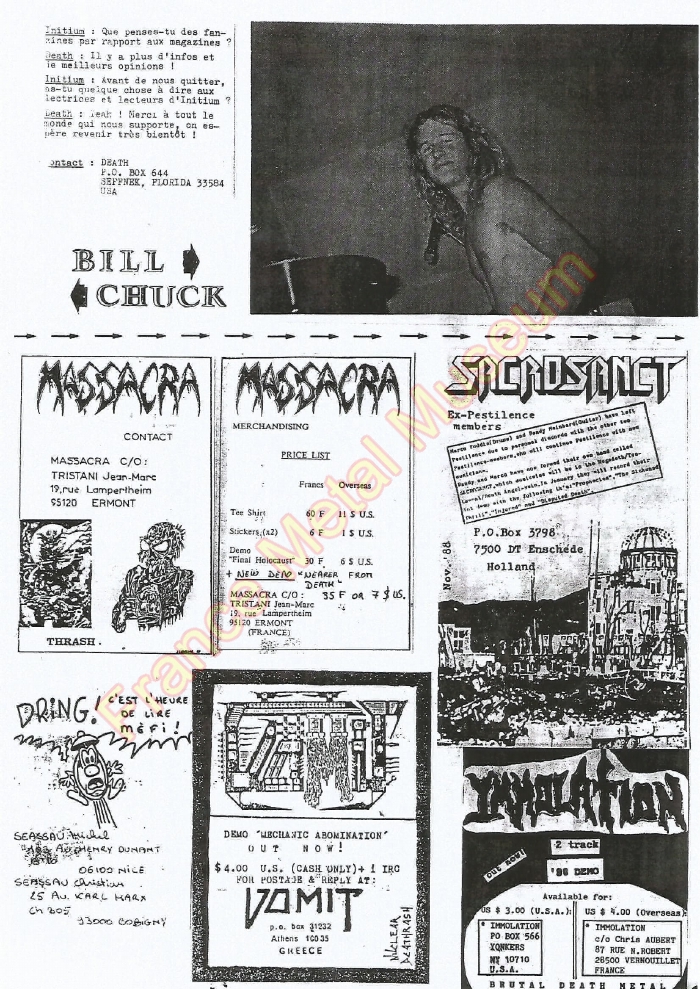 Initium : Que penses-tu des fan-
zines par rapport aux magazines ?
Death : Il y a plus d'infos et
de meilleurs opinions !
Initium : Avant de nous quitter,
as-tu quelque chose à dire aux
lectrices et lecteurs d'Initium ?
Death : Yeah ! Merci à tout le
monde qui nous supporte, on es-
père revenir très bientôt !
ontact : DEATH
P.O. BOX 644
SEFFNEK, FLORIDA 33584
USA
BILL
CHUCK
MASSACRA
CONTACT
MASSACRA C/O :
TRISTANI Jean-Marc
19, rue Lampertheim
95120 ERMONT
THRASH.
MASSACRA
MERCHANDISING
PRICE LIST
Francs Overseas
Tee Shirt 60 F 11 $ U.S.
Stickers (x2) 6 F 1 $ U.S.
Demo
"Final Holocaust" 30 F 6 $ U.S.
+ NEW DEMO "NEARER FROM
DEATH"
35 F OR 7 $ US.
MASSACRA C/O :
TRISTANI Jean-Marc
19, rue Lampertheim
95120 ERMONT
(FRANCE)
SACROSANCT
Ex-Pestilence
members
Marco Foddis(Drums) and Randy Meinhard(Guitar) have left
Pestilence due to personal discords with the other two
Pestilence-members, who will continue Pestilence with new
musicians.
Randy and Marco have now formed their own band called
SACROSANCT, which musicwise will be in the Megadeth/
vein. In January they will record their
1st demo with the following
P.O.Box 3798
7500 DT Enschede
Holland
Nov.'88
DRING! C'EST L'HEURE
DE LIRE
MÉFI !
SEASSAU Michel
AV. HENRY DUNANT
06100 NICE
SEASSAU Christian
25 Av. KARL MARX
Ch 305
93000 BOBIGNY
DEMO "MECHANIC ABOMINATION"
OUT NOW!
$4.00 U.S. (CASH ONLY)+ 1 IRC
FOR POSTAGE & REPLY AT:
VOMIT
p.o. box 31232
Athens 10035
GREECE
NUCLEAR
DEATHRASH
IMMOLATION
out now!
2 track
'88 DEMO
Available for:
US $ 3.00 (U.S.A.):
* IMMOLATION
PO BOX 566
YONKERS
NY 10710
U.S.A.
US $ 4.00 (Overseas)
* IMMOLATION
c/o Chris AUBERT
87 RUE N.ROBERT
28500 VERNOUILLET
FRANCE
BRUTAL DEATH METAL
France Metal Museum